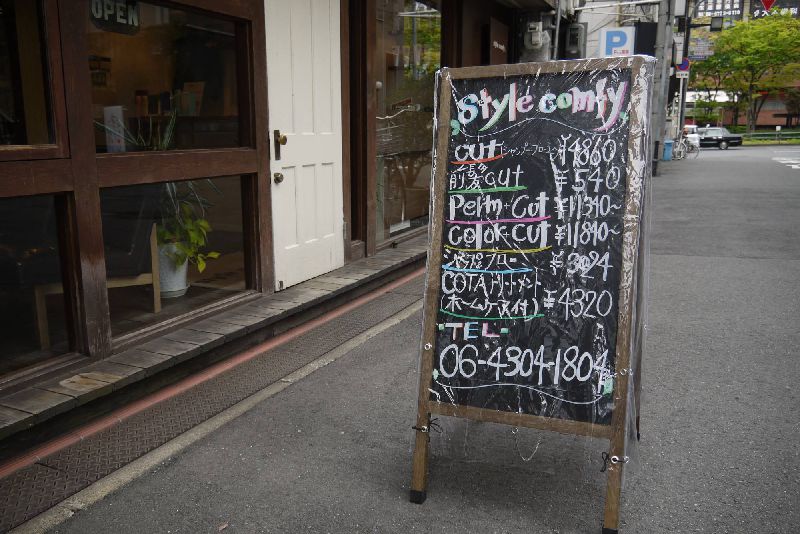 OPEN
P
Style comfy
cut シャンプーブロー込 ¥4860
前髪cut ¥540
Perm+Cut ¥11340~
Color+cut ¥11840~
シャンプーブロー ¥3024
COTAトリートメント
(ホームケア付) ¥4320
TEL
06-4304-1804